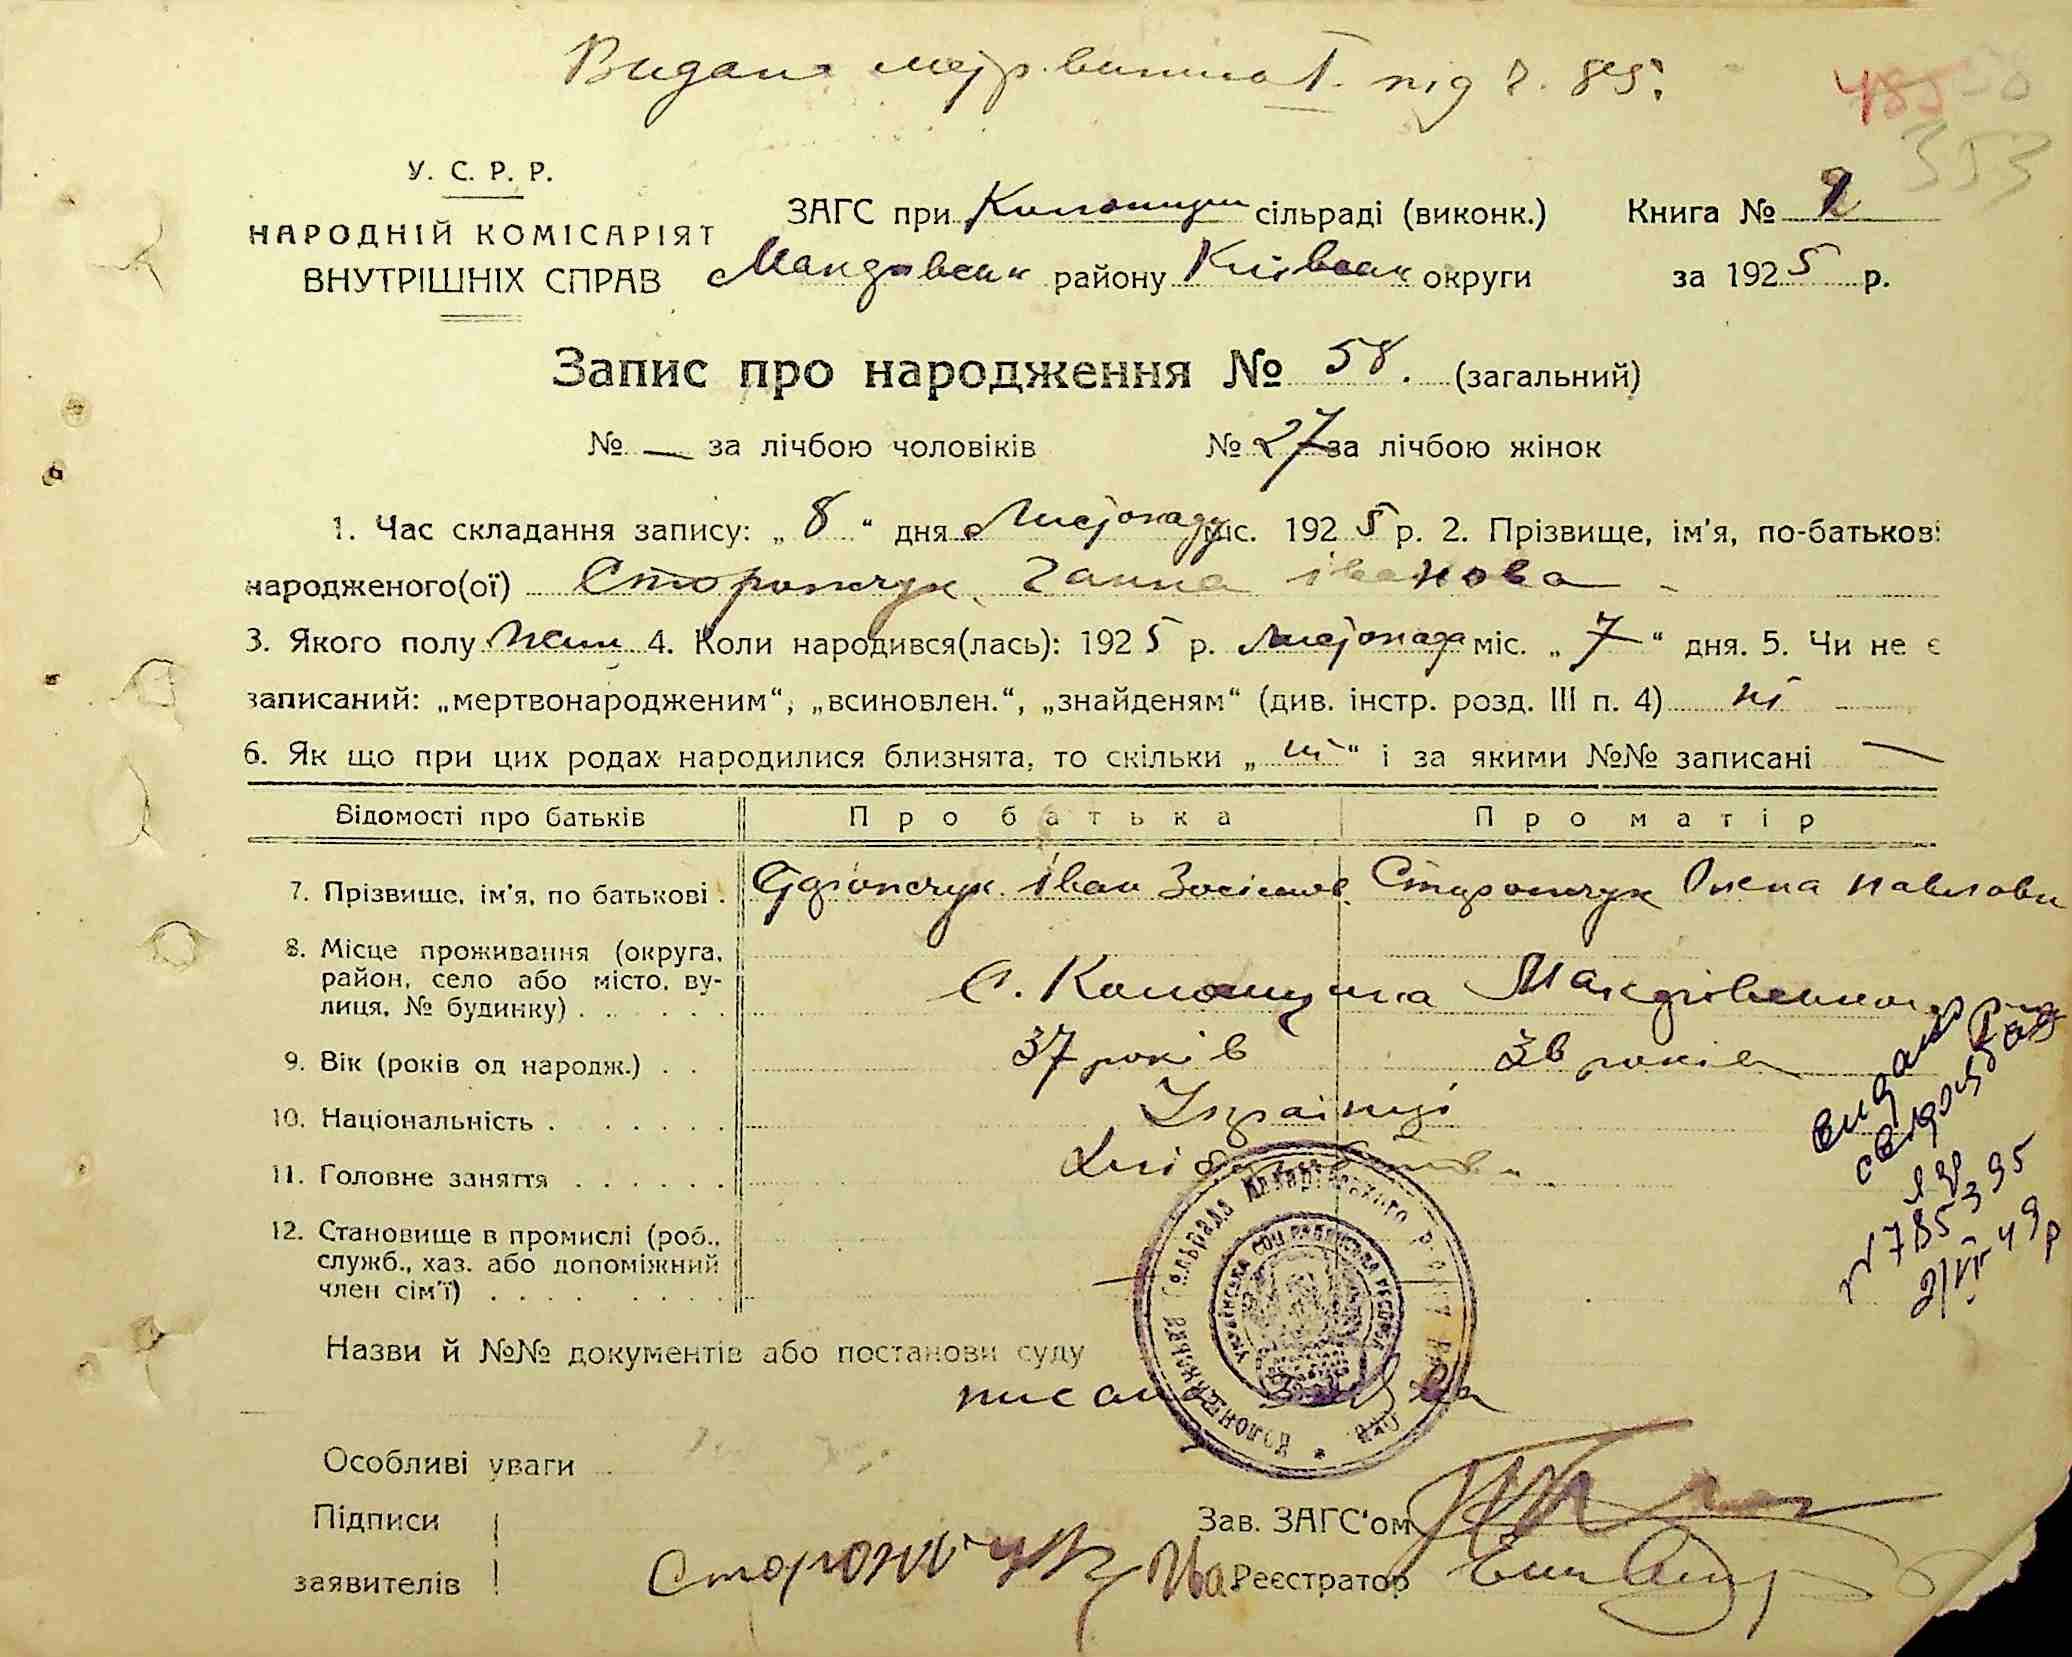 Видано метр. виписа І. під ч. 85.
485 58
353
У. С. Р. Р.
НАРОДНІЙ КОМІСАРІЯТ
ВНУТРІШНІХ СПРАВ
ЗАГС при Колонщин сільраді (виконк.) Книга № 2
Макарівськ району Київськ округи за 1925 р.
Запис про народження № 58. (загальний)
№ — за лічбою чоловіків № 27 за лічбою жінок
1. Час складання запису: „8“ дня Листопаду міс. 1925 р. 2. Прізвище, ім'я, по-батькові
народженого(ої) Сторончук, Ганна Іванова
3. Якого полу Жін 4. Коли народився(лась): 1925 р. Листопада міс. „7“ дня. 5. Чи не є
записаний: „мертвонародженим“, „всиновлен.“, „знайденям“ (див. інстр. розд. III п. 4) ні
6. Як що при цих родах народилися близнята, то скільки „ні“ і за якими №№ записані —
Відомості про батьків Про батька Про матір
7. Прізвище, ім'я, по батькові . Іван Зосімов. Олена Павлови
8. Місце проживання (округа,
район, село або місто, ву-
лиця, № будинку) . . . . . . с. Колонщина Макарівськ
9. Вік (років од народж.) . . 37 років 36 років
10. Національність . . . . . . . Українці
11. Головне заняття . . . . . . Хлібороби
12. Становище в промислі (роб.,
служб., хаз. або допоміжний
член сім'ї) . . . . . . . . —
видано
свідоцтво
ЯЦ
№ 785395
2/VI 49р
Назви й №№ документів або постанови суду
Колонщинська Сільрада Макарівського Району
УКРАЇНСЬКА СОЦ. РАДЯНСЬКА РЕСПУБЛ.
Особливі уваги
Підписи
заявителів Сторончук Ива
Зав. ЗАГС'ом
Реєстратор